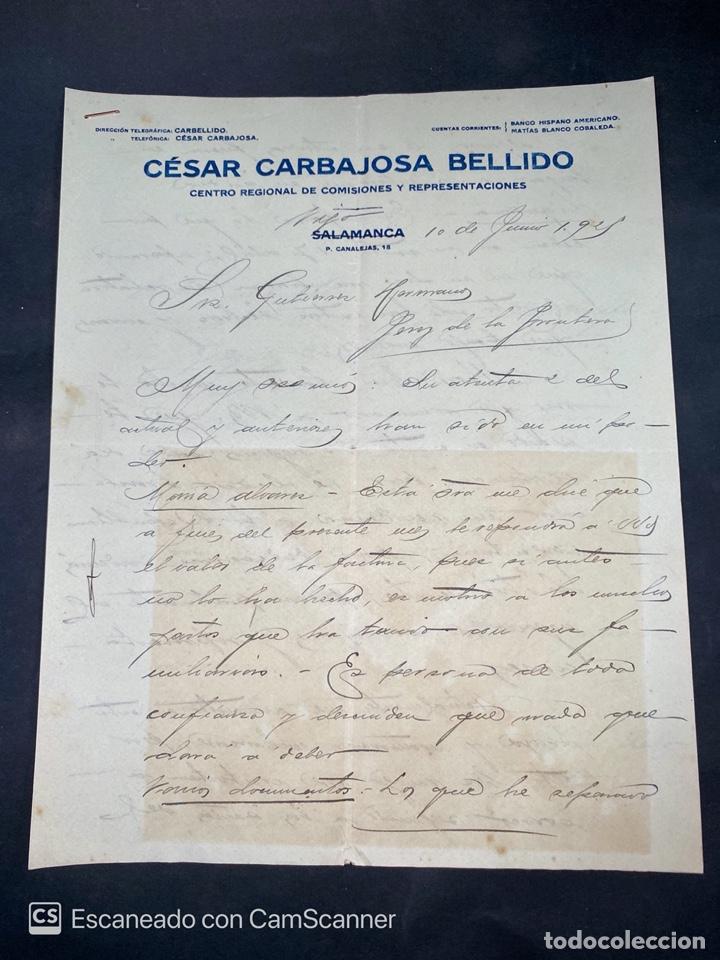 DIRECCIÓN TELEGRÁFICA: CARBELLIDO.
" TELEFÓNICA: CÉSAR CARBAJOSA.
CUENTAS CORRIENTES: BANCO HISPANO AMERICANO.
MATÍAS BLANCO COBALEDA.
CÉSAR CARBAJOSA BELLIDO
CENTRO REGIONAL DE COMISIONES Y REPRESENTACIONES
Vigo
SALAMANCA 10 de Junio 1.925
P. CANALEJAS, 18
Sres. Gutierrez Hermanos
Jerez de la Frontera
Muy Sres mios: Su atenta 2 del
actual y anteriores han sido en mi po-
der.
Maria Alvarez - Esta Sra me dice que
a fines del presente mes le repondrá a VVds
el valor de la factura, pues si antes
no lo ha hecho, es motivo a los muchos
gastos que ha tenido con sus fa-
miliares. - Es persona de toda
confianza y descuiden que nada que
dará a deber
Varios documentos - Los que he
CS Escaneado con CamScanner
todocoleccion